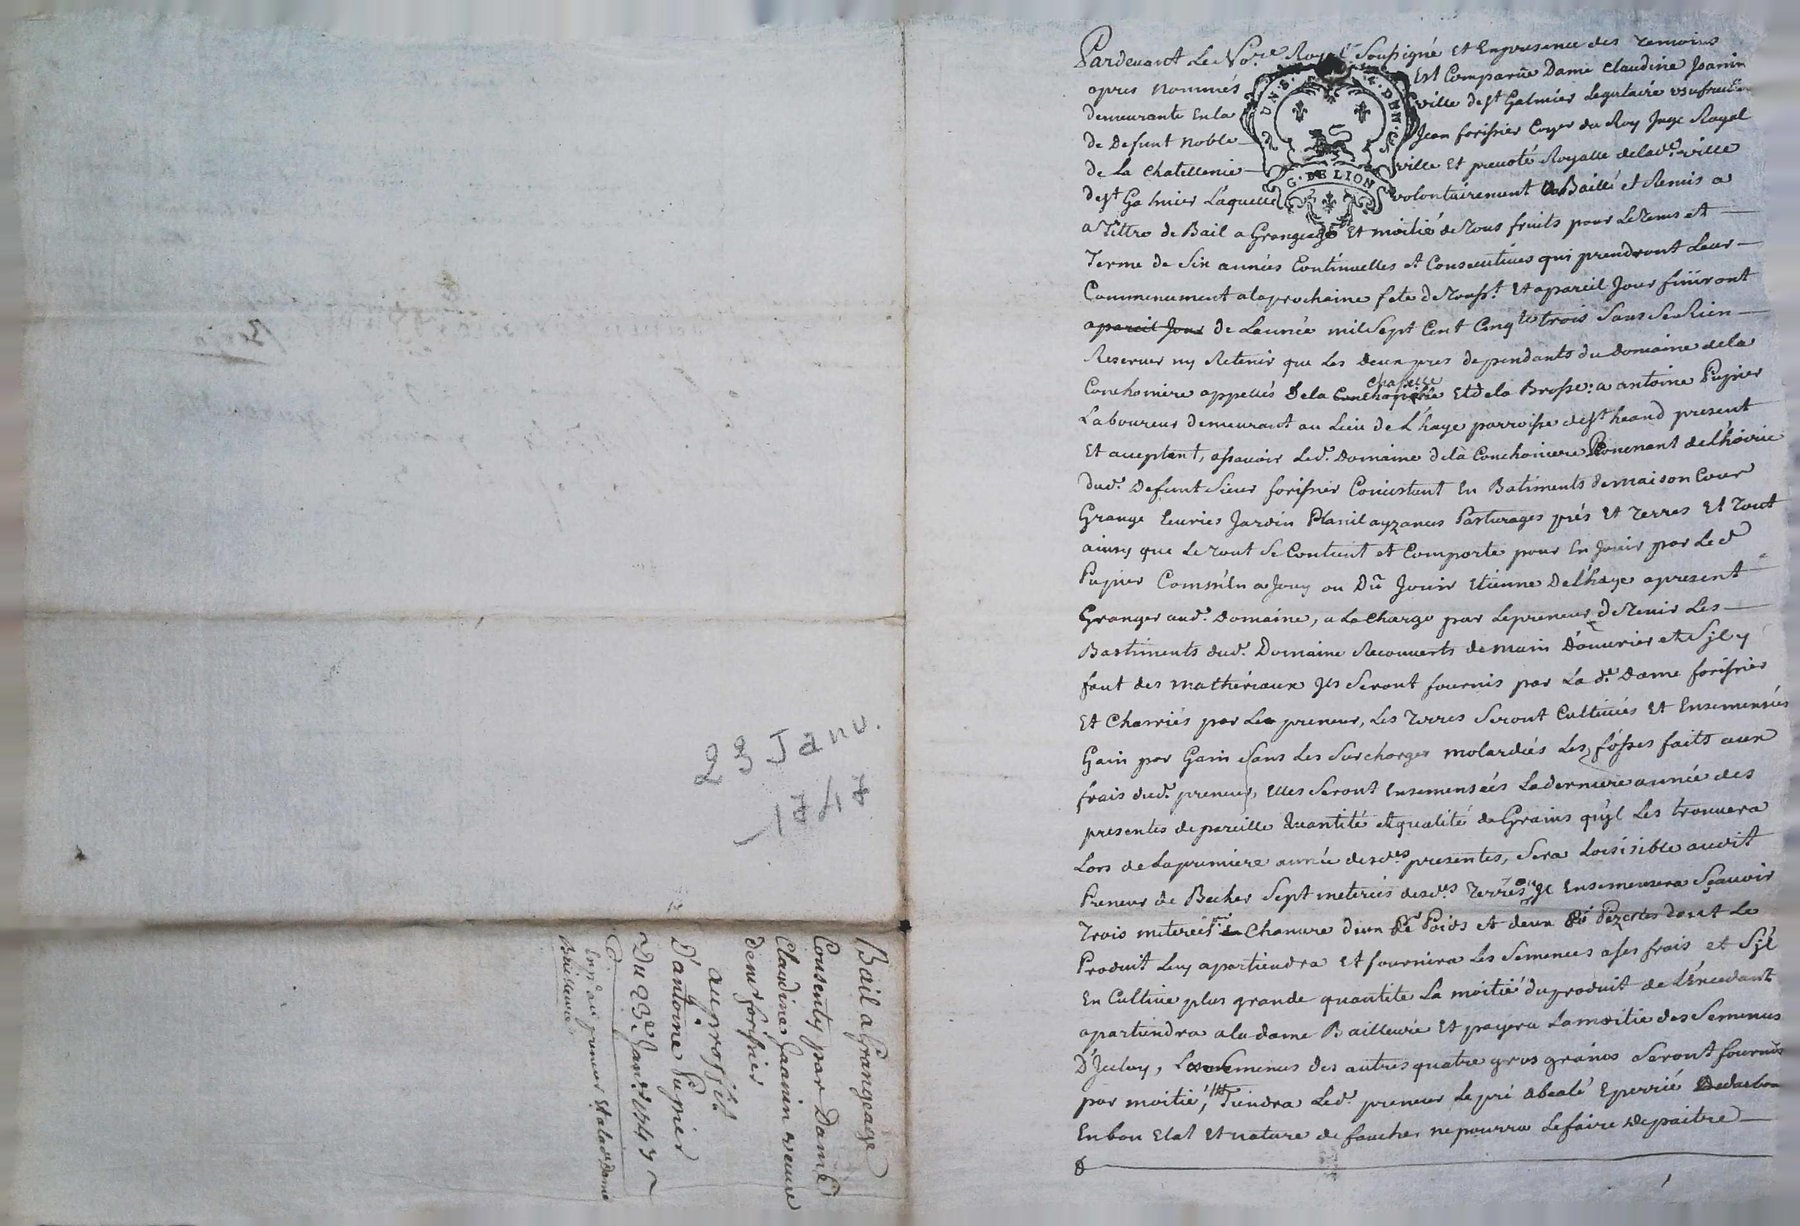 Pardevant Le No.re Royal Soussigné et Enpresence des temoins
apres Nommés Est Comparüe Dame Claudine Joanin
demeurante Enla ville de st Galmier Legataire usufruit.re
de Defunt Noble Jean forissier Coyer du Roy Juge Royal
de La Chatellenie ville Et prevoté Royalle delad.e ville
de st Galmier Laquelle volontairement a Baillé et Remis a
a Tittre de Bail a Grangeage Et moitié de tous fruits pour Letems et
Terme de Six années Continuelles et Consecutives qui prendront Leur
Commencement alaprochaine fete de touss.t Et apareil Jour finiront
apareil Jour de Lannée mil Sept Cent Cinq.te trois Sans Se Rien
Reserver ny Retenir que Les deux pres dependants du Domaine dela
Conchoniere appellés Dela chapelle Et dela Brosse: a antoine Pupier
Laboureur demeurant au Lieu de L'haye parroisse de st heand present
Et acceptant, assavoir Led. Domaine dela Conchoniere Provenant de L'hoirie
dud. Defunt Sieur forissier Consistant En Batiments de maison Cour
Grange Ecuries Jardin Planil ayzances Pasturages prés Et Terres Et tout
ainsy que Le tout Se Contient et Comporte pour En Jouir par Led
Pupier Comme En a Jouy ou Dû Jouir Etienne Delhaye apresent
Granger aud. Domaine, a La Charge par Lepreneur de tenir Les
Bastiments dud. Domaine Recouverts demain D'ouvrier et S'jl y
faut des matheriaux Jls Seront fournis par Lad.e Dame forissier
Et Charriés par Le preneur, Les Terres Seront Cultivées Et Ensemensées
Gain par Gain Sans Les Surcharger molardiés Les fosses faits aux
frais dud. preneur, Elles Seront Ensemensées Laderniere année des
presentes de pareille Quantité et qualité de Grains qu'jl Les trouvera
Lors de Lapremiere année desd.es presentes, Sera Loisisible audit
Preneur de Becher Sept meterées desd.es Terres Jl Ensemensera Sçavoir
Trois meterées Chanvre deux de Poids et deux Pezettes dont Le
Produit Luy apartiendra Et fournira Les Semences a Ses frais et S'jl
En Cultive plus grande quantité La moitié du produit de L'Excedant
apartiendra a la dame Bailleure Et payera Lamoitié des Semences
D'Jceluy, Les Semences des autres quatre gros grains Seront fournis
par moitié, Tiendra Led. preneur Le pré
En bon Etat Et nature de faucher ne pourra Lefaire depaitre
G. DE LION
23 Janv.
1747
Bail a Grangeage
Consenty par Dame
Claudine Joanin veuve
deM.r forissier
au proffit
D'antoine Pupier
Du 23.e Janv. 1747
Exp.é au preneur Et alad.e Dame
Bailleure